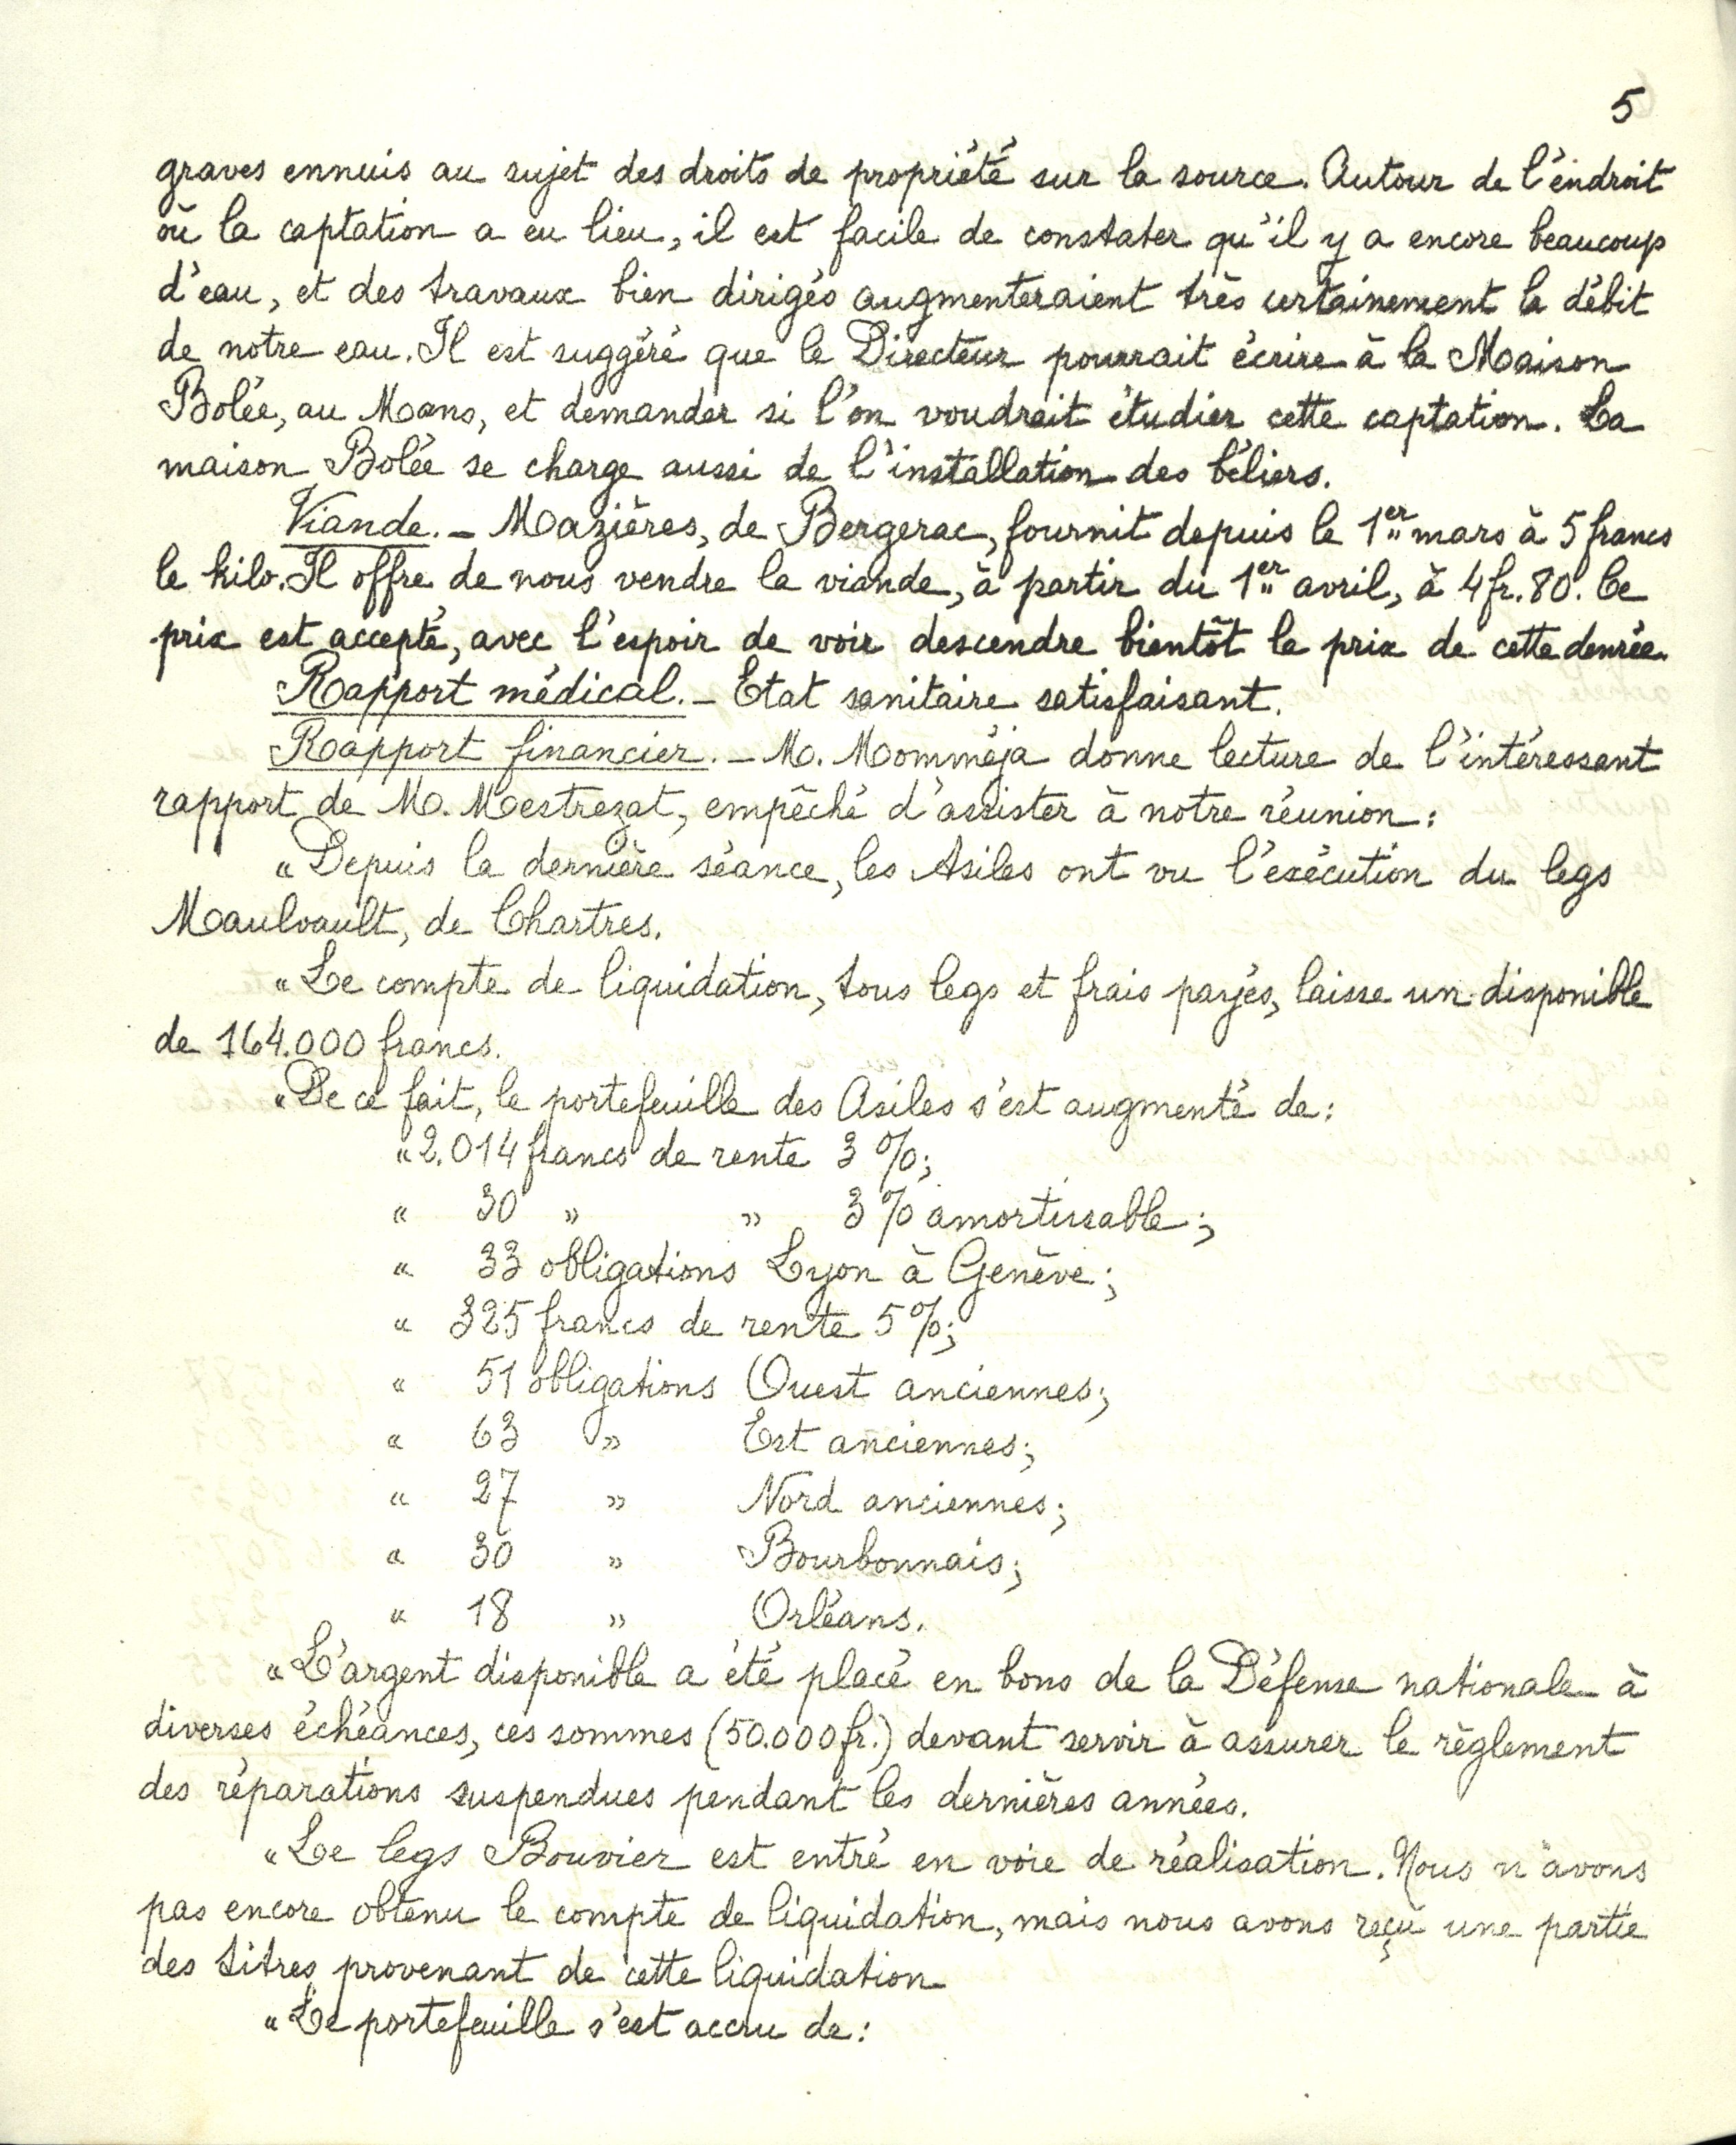 5
graves ennuis au sujet des droits de propriété sur la source. Autour de l'endroit
où la captation a eu lieu, il est facile de constater qu'il y a encore beaucoup
d'eau, et des travaux bien dirigés augmenteraient très certainement le débit
de notre eau. Il est suggéré que le Directeur pourrait écrire à la Maison
Bolée, au Mans, et demander si l'on voudrait étudier cette captation. La
maison Bolée se charge aussi de l'installation des béliers.
Viande. - Mazières, de Bergerac, fournit depuis le 1er mars à 5 francs
le kilo. Il offre de nous vendre la viande, à partir du 1er avril, à 4 fr. 80. Ce
prix est accepté, avec l'espoir de voir descendre bientôt le prix de cette denrée.
Rapport médical. - Etat sanitaire satisfaisant.
Rapport financier. - M. Momméja donne lecture de l'intéressant
rapport de M. Mestrezat, empêché d'assister à notre réunion :
« Depuis la dernière séance, les Asiles ont vu l'exécution du legs
Maulvault, de Chartres.
« Le compte de liquidation, tous legs et frais payés, laisse un disponible
de 164.000 francs.
« De ce fait, le portefeuille des Asiles s'est augmenté de :
« 2.014 francs de rente 3 %;
« 30 » » 3 % amortissable ;
« 33 obligations Lyon à Genève ;
« 325 francs de rente 5 %;
« 51 obligations Ouest anciennes;
« 63 » Est anciennes;
« 27 » Nord anciennes;
« 30 » Bourbonnais;
« 18 » Orléans.
« L'argent disponible a été placé en bons de la Défense nationale à
diverses échéances, ces sommes (50.000 fr.) devant servir à assurer le règlement
des réparations suspendues pendant les dernières années.
« Le legs Bouvier est entré en voie de réalisation. Nous n'avons
pas encore obtenu le compte de liquidation, mais nous avons reçu une partie
des titres provenant de cette liquidation
« Le portefeuille s'est accru de :